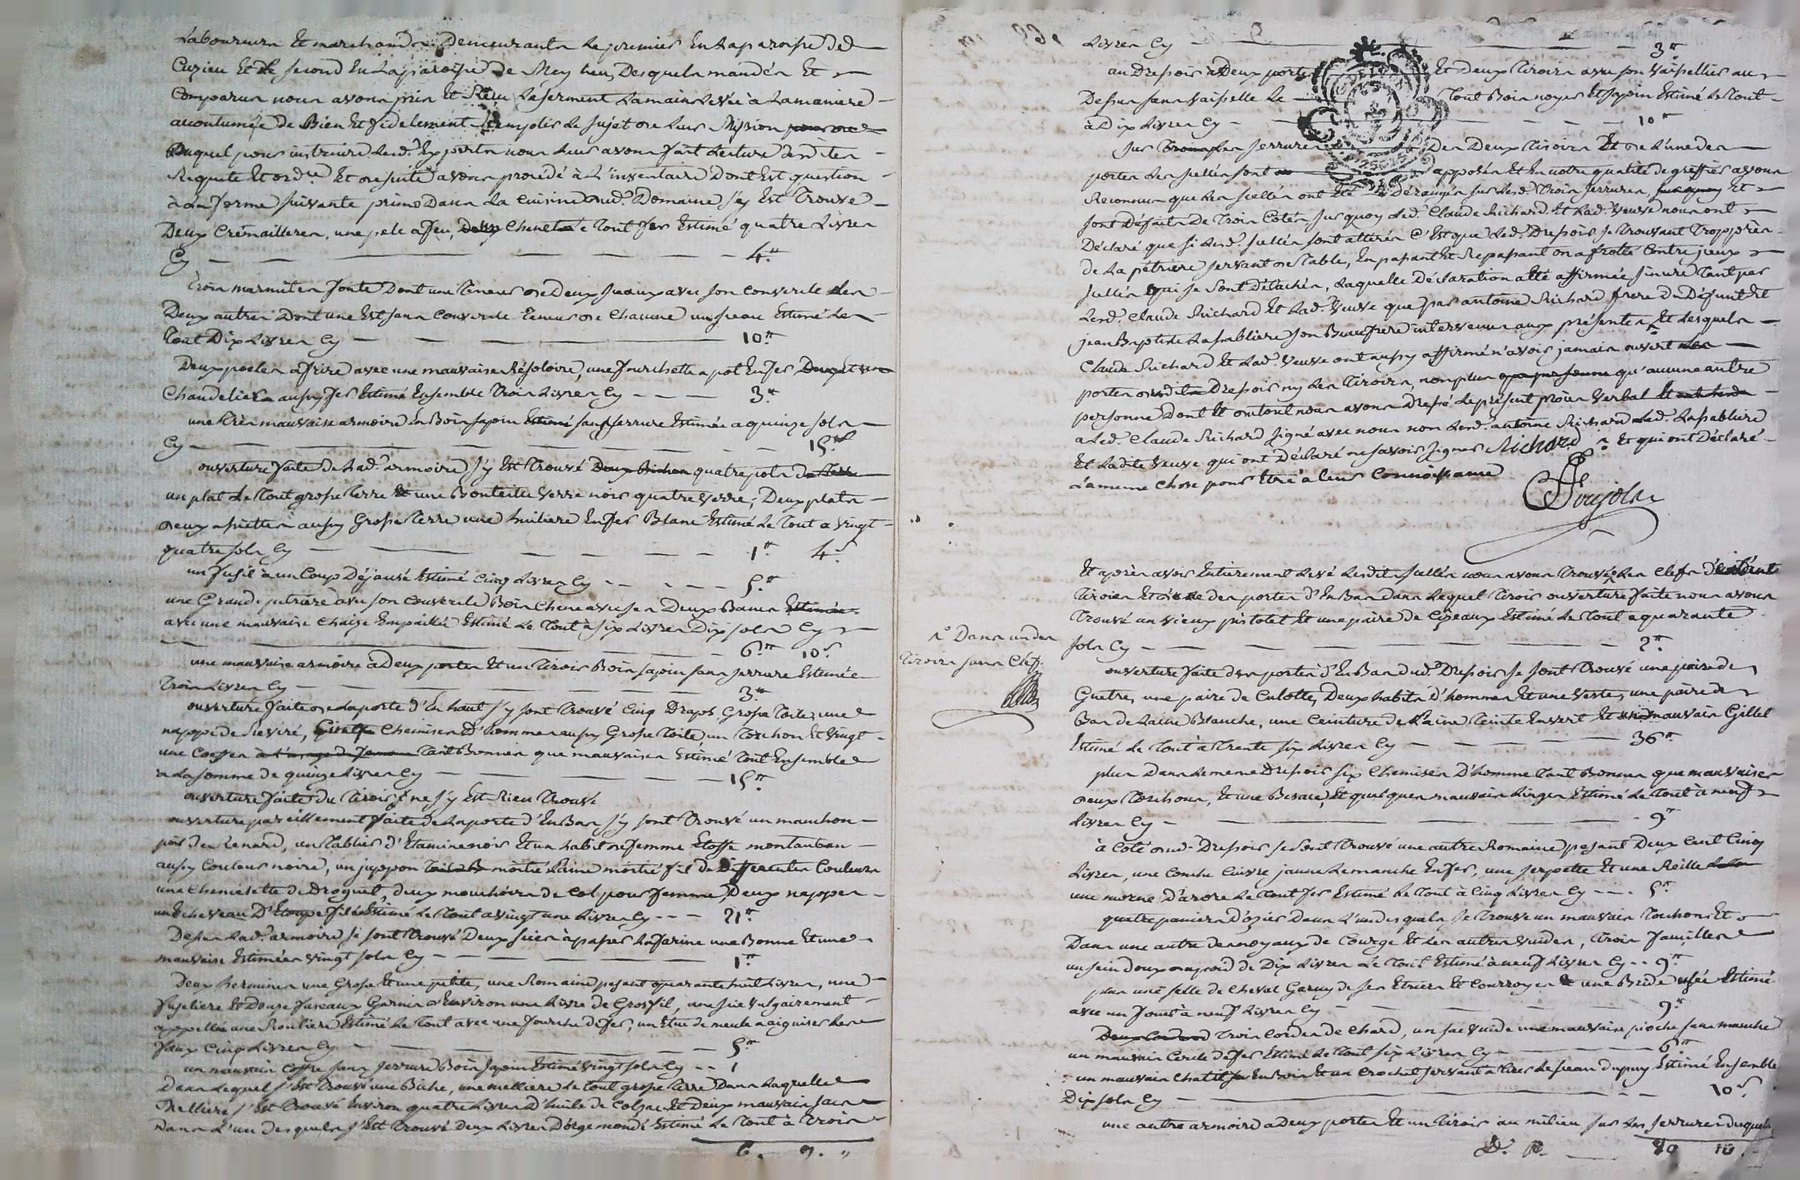 Laboureurs Et marchands Demeurants Le premier En La paroisse de
Cuzieu Et le second En La paroisse De Meylieu, Desquels mandés Et
Comparus nous avons pris Et Reçu Le serment La main Levée à La maniere
accoutumée de Bien Et fidelement Remplir Le sujet de Leur Mission
Duquel pour instruire Lesd. Experts nous Leur avons fait Lecture desdites
Requete Et ordce Et de suite avons procedé à L'inventaire Dont Est question
à La forme suivante primo Dans La cuisine dud. Domaine s'y Est Trouvé
Deux Crémailleres, une pele à feu, deux Chenets Le Tout fer Estimé quatre Livres
Cy 4tt
Trois marmites fonte Dont une Teneur de Deux seaux avec son couvercle Les
Deux autres Dont une Est sans Couvercle Teneur de Chacune un seau Estimé Le
Tout Dix Livres Cy 10tt
Deux poeles à frire avec une mauvaise Résoloire, une fourchette a pot En fer
Chandelier aussy fer Estimé Ensemble Trois Livres Cy 3tt
une très mauvaise armoire En Bois sapin sans serrure Estimée a quinze sols
Cy 15s
ouverture faite de Lad. armoire s'y Est Trouvé quatre pots
un plat Le Tout grosse Terre Et une Bouteille Verre noir quatre Verre, Deux plats
deux assiettes aussy Grosse Terre une huiliere En fer Blanc Estimé Le Tout a Vingt
quatre sols Cy 1tt 4s
un fusil à un Coup Estimé Cinq Livres Cy 5tt
une Grande petriere avec son couvercle Bois Chene avec ses Deux Bancs
avec une mauvaise Chaise Empaillée Estimé Le Tout à six Livres Dix sols Cy
6tt 10s
une mauvaise armoire à Deux portes Et un Tiroir Bois sapin sans serrure Estimée
Trois Livres Cy 3tt
ouverture faite de La porte d'En haut s'y sont Trouvé Cinq Draps Grosse Toile, une
nappe de Reviré, Chemises D'homme aussy Grosse Toile un Torchon Et Vingt
une Coeffes Tant Bonnes que mauvaises Estimé Tout Ensemble
a La somme de quinze Livres Cy 15tt
ouverture faite du Tiroir ne s'y Est Rien Trouvé
ouverture pareillement faite de La porte d'En Bas s'y sont Trouvé un manchon
poil de Renard, un Tablier d'Etamine noir Et un habit de femme Etoffe montauban
aussy Couleur noire, un juppon moitié Laine moitié fil de Differentes Couleurs
une Chemisette de Droguet, deux mouchoirs de Col pour femme, Deux nappes
un Echeveau D'Etoupe filé Estimé Le Tout a vingt une Livres Cy 21tt
Dessus Lad. armoire se sont Trouvé Deux scier à passer La farine une Bonne Et une
mauvaise Estimées Vingt sols Cy 1tt
Deux herminer une Grosse Et une petite, une Romaine pesant quarante huit Livres, une
fuseliere Et Douze fuseaux Garnis d'Environ une Livre de Gros fil, une scie vulgairement
appellée une Rouliere Estimé Le Tout avec une fourche de fer, un Etui de meule a aiguiser Les
faux Cinq Livres Cy 5tt
un mauvais Coffre sans serrure Bois sapin Estimé Vingt sols Cy 1
Dans Lequel s'Est Trouvé une Biche, une Melliere Le Tout grosse Terre Dans Laquelle
Melliere s'Est Trouvé Environ quatre Livres d'huile de Colzat Et Deux mauvais sacs
Dans L'un Desquels s'Est Trouvé Deux Livres D'orge mondé Estimé Le Tout à Trois
6. 9. "
Livres Cy 3tt
au Dressoir à Deux portes Et Deux Tiroirs avec son Vaissellier au
Dessus sans vaisselle Le Tout Bois noyer Et sapin Estimé Le Tout
à Dix Livres Cy 10tt
sur Les serrures Des Deux Tiroirs Et de L'une des
portes Les scellés sont apposés Et En notre qualité de greffier avons
Reconnu que Les scellés ont Eté Dérangés sur Lesd. Trois serrures, Et
sont Défaits De Trois Cotés sur quoy Led. Claude Richard Et Lad. Veuve nous ont
Déclaré que si Lesd. scellés sont altérés C'Est que Led. Dressoir se Trouvant Trop près
de La pétriere servant de Table, En passant Et Repassant on a frotté Contre jceux
scellés qui se sont Détachés, Laquelle Déclaration a Eté affirmée sincere Tant par
Led. Claude Richard Et Lad. Veuve que par antoine Richard frere Du Défunt Et
jean Baptiste La sabliere son Beaufrere intervenus aux présentes, Et Lesquels
Claude Richard Et Lad. Veuve ont aussy affirmé n'avoir jamais ouvert Les
portes dudit Dressoir ny Les Tiroirs, non plus qu'aucune autre
personne Dont Et du tout nous avons Dressé Le présent procès Verbal
a Led. Claude Richard signé avec nous non Led. antoine Richard Led. La sabliere
Et Ladite Veuve qui ont Déclaré ne savoir signer Richard Et qui ont Déclaré
La meme Chose pour Etre à leur Connoissance
Goujols
Et après avoir Entierement Levé Lesdits scellés nous avons Trouvé Les Clefs
Tiroirs Et des portes d'En Bas Dans Lequel Tiroir ouverture faite nous avons
Trouvé un vieux pistolet Et une paire de Ciseaux Estimé Le Tout a quarante
sols Cy 2tt
ro Dans un des
Tiroirs sans Clef
ouverture faite des portes d'En Bas dud. Dressoir se sont Trouvé une paire de
Guetres, une paire de Culotte, Deux habits d'homme Et une Veste, une paire de
Bas de Laine Blanche, une Ceinture de Laine Teinte En vert Et mauvais Gillet
Estimé Le Tout à Trente six Livres Cy 36tt
plus Dans Le meme Dressoir six Chemises D'homme Tant Bonnes que mauvaises
deux Torchons, Et une Besace, Et quelques mauvais Linges Estimé Le Tout à neuf
Livres Cy 9tt
à Coté dud. Dressoir se sont Trouvé une autre Romaine pesant Deux Cent Cinq
Livres, une Conche Cuivre jaune Le manche En fer, une serpette Et une Reille
une morne d'arare Le Tout fer Estimé Le Tout à Cinq Livres Cy 5tt
quatre paniers D'ozier Dans L'un desquels se Trouve un mauvais Torchons Et
Dans une autre des noyaux de Courge Et Les autres Vuides, Trois faucilles
un sein doux du poid de Dix Livres Le Tout Estimé à neuf Livres Cy 9tt
plus une selle de Cheval Garny de ses Etriers Et Courroyes Et une Bride usée Estimé
avec un fouet à neuf Livres Cy 9tt
Trois Cordes de Chard, un sac vuide une mauvaise pioche sans manche
un mauvais Cercle de fer Estimé Le Tout six Livres Cy 6tt
un mauvais Chalit En Bois Et un Crochet servant a Tirer Le seau du puy Estimé Ensemble
Dix sols Cy 10s
une autre armoire a Deux portes Et un Tiroir au milieu sur Les serrures Duquel
D. P. 90 10